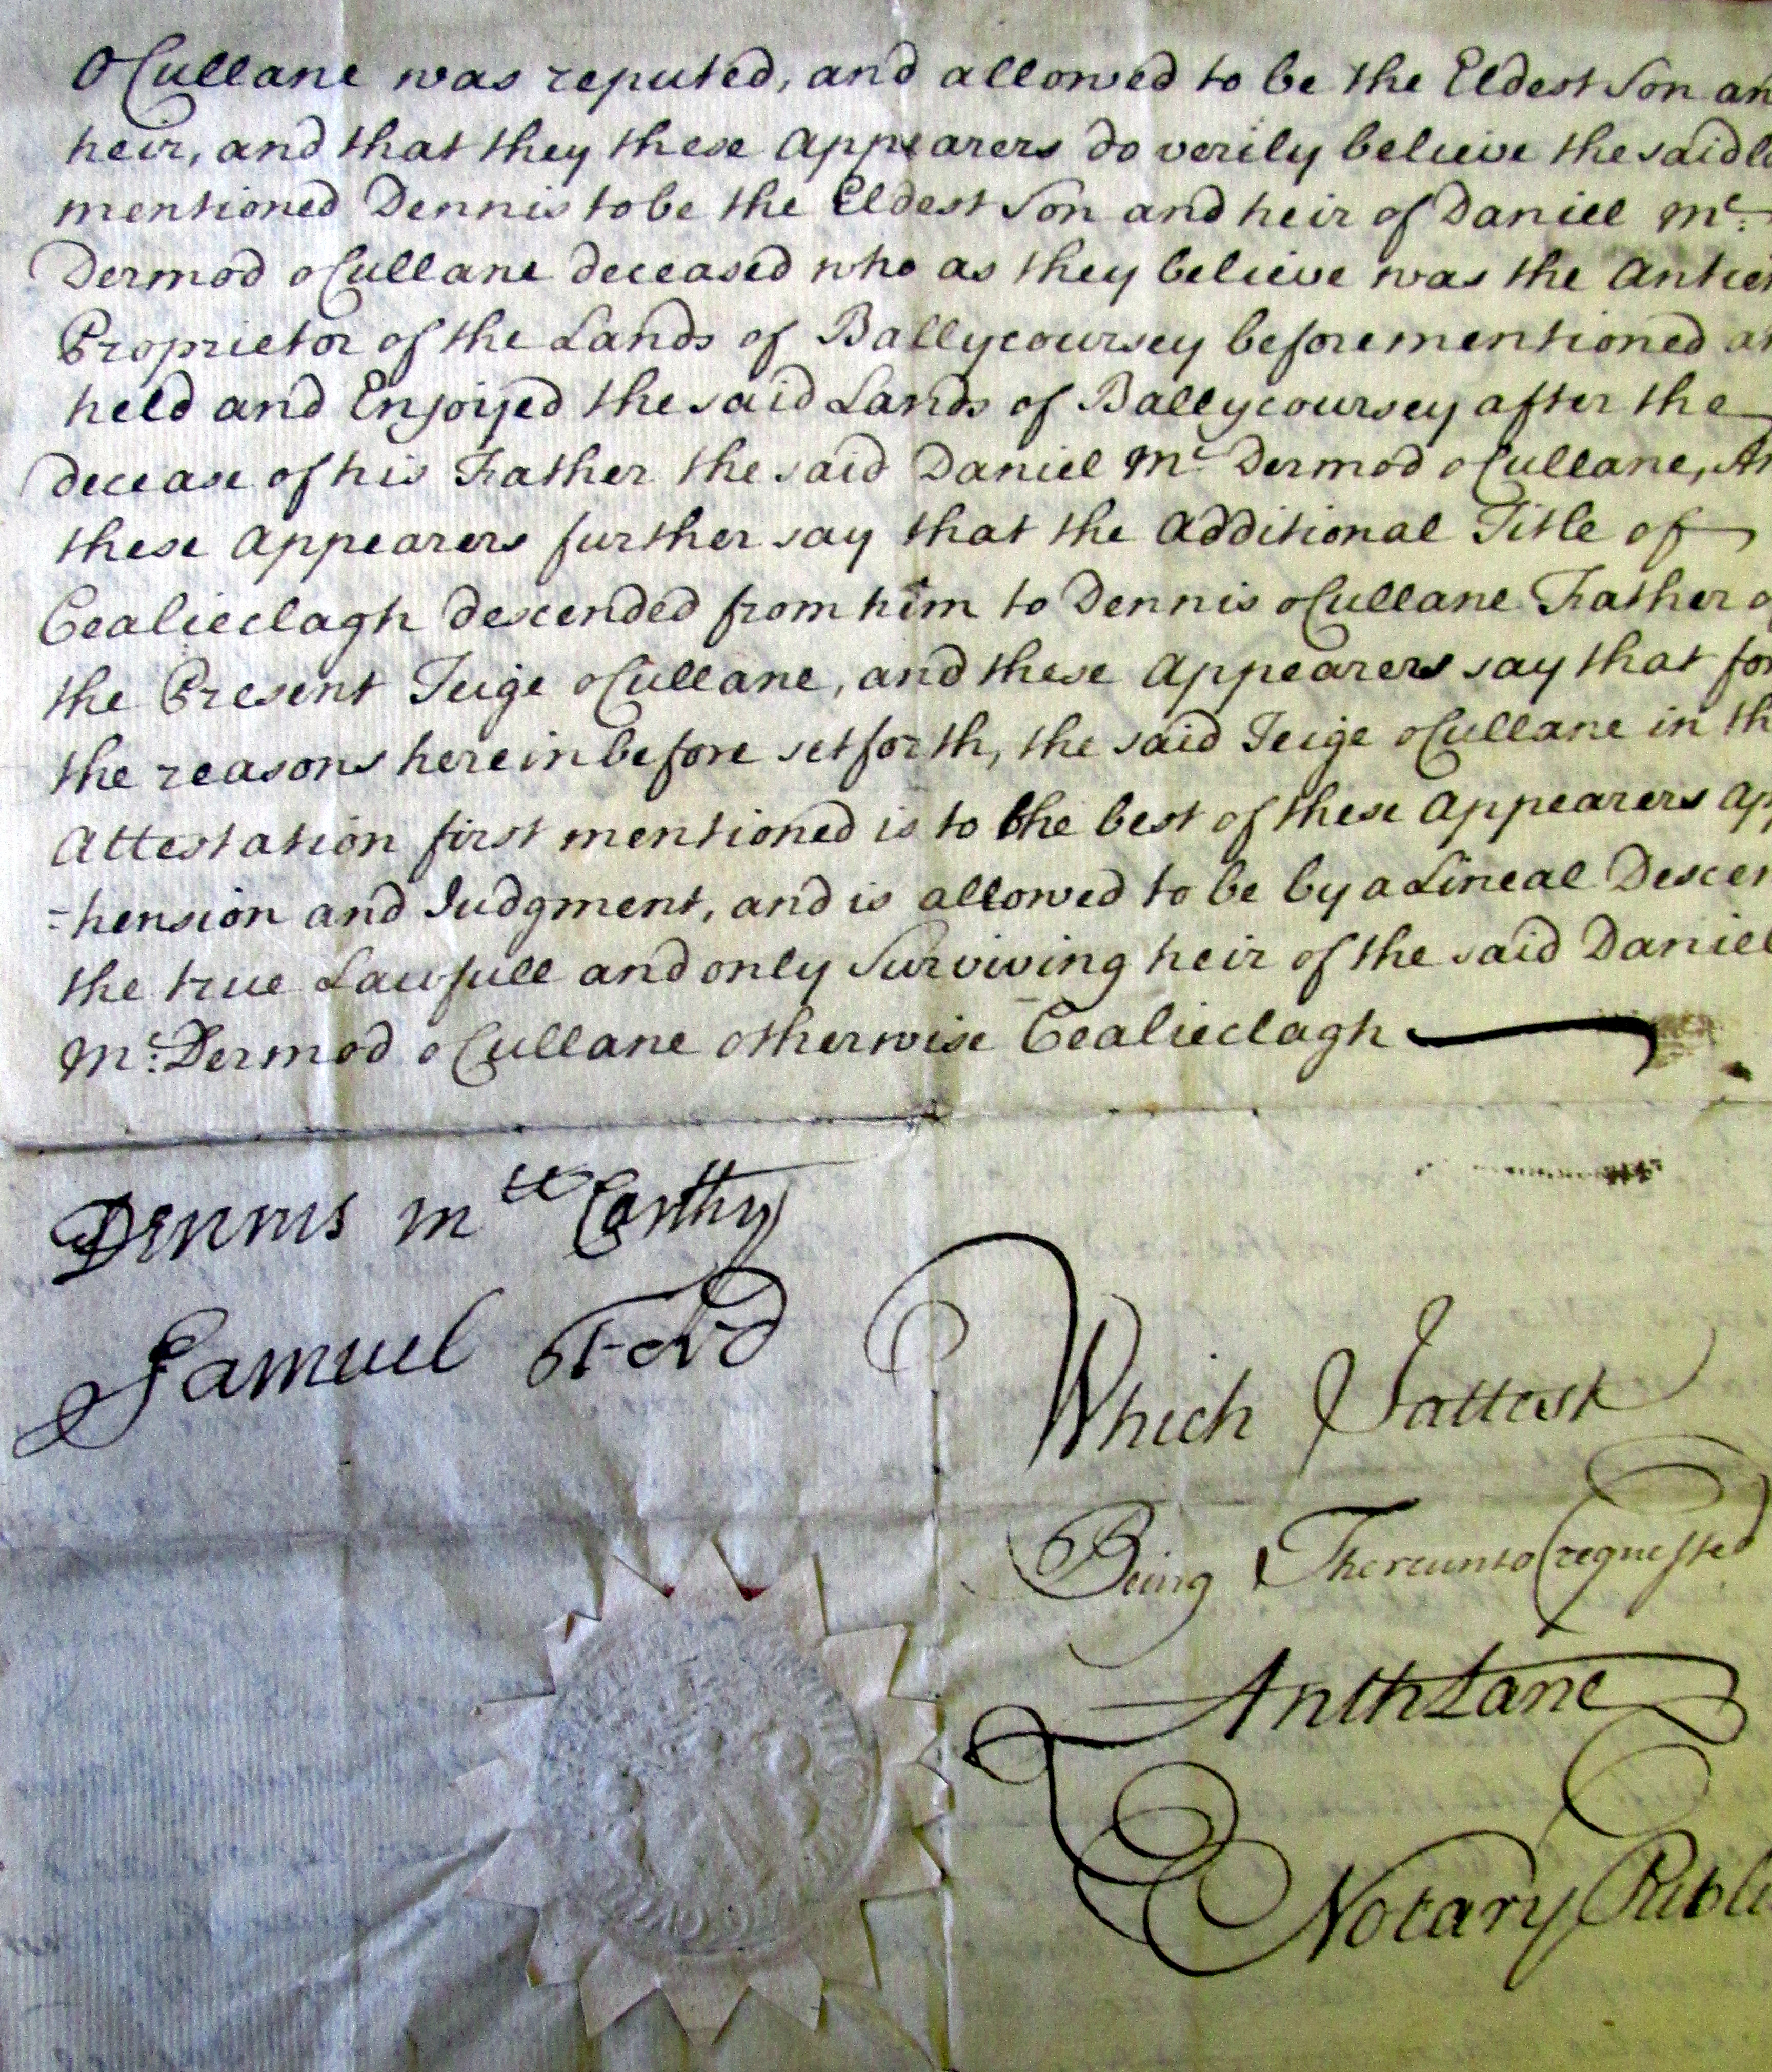 OCullane was reputed, and allowed to be the Eldest Son an
heir, and that they these Appearers do verily believe the said la
mentioned Dennis to be the Eldest Son and heir of Daniel Mc:
Dermod oCullane deceased who as they believe was the Antien
Proprietor of the Lands of Ballycoursey beforementioned an
held and Enjoyed the said Lands of Ballycoursey after the
decease of his Father the said Daniel Mc Dermod oCullane, An
these Appearers further say that the Additional Title of
Cealieclagh descended from him to Dennis oCullane Father o
the Present Teige oCullane, and these Appearers say that for
the reasons hereinbefore setforth, the said Teige oCullane in th
Attestation first mentioned is to the best of these Appearers App
=hension and Judgment, and is allowed to be by a Lineal Descen
the true Lawfull and only Surviving heir of the said Daniel
Mc: Dermod oCullane otherwise Cealieclagh
Dennis Mc Carthy
Samuel Ford
Which I attest
Being Thereunto requested
Anth Lane
Notary Publi